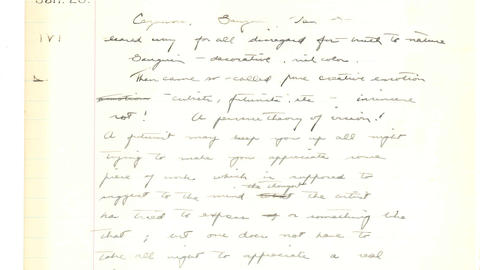 Jan. 25.
Cezanne, Gauguin, Van
eared way for all disregard for truth to nature
Gauguin - decorative, rich color.
Then came so-called pure creative emotion
emotion - cubists, futurists, etc - insincere
rot! A perverse theory of vision!
A futurist may keep you up all night
trying to make you appreciate some
piece of work which is supposed to
suggest to the mind the thought the artist
has tried to express or something like
that; but one does not have to
take all night to appreciate a real